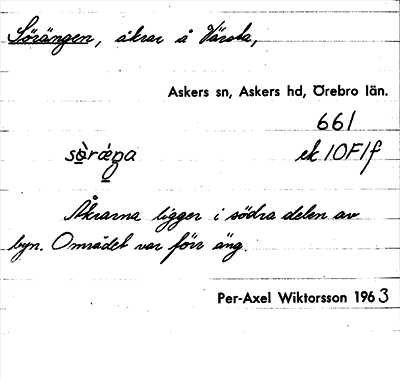 Sörängen, åkrar å Värsta,
Askers sn, Askers hd, Örebro län.
661
ek 10F1f
Åkrarna ligger i södra delen av
byn. Området var förr äng.
Per-Axel Wiktorsson 1963